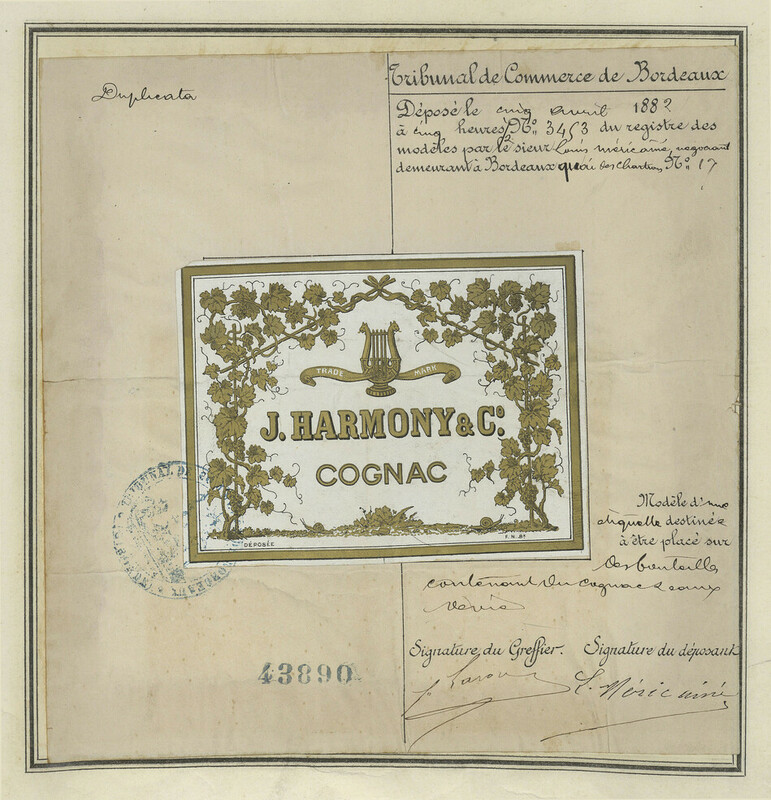 Duplicata
Tribunal de Commerce de Bordeaux
Déposé le cinq avril 1882
à cinq heures, No. 3453 du registre des
modèles par le sieur Louis Méricainé, négociant
demeurant à Bordeaux quai des Chartrons No. 17
TRADE MARK
J. HARMONY & Co.
COGNAC
DÉPOSÉE
F. N. Bx
Modèle d'une
étiquette destinée
à être placé sur
des bouteilles
contenant du cognac
TRIBUNAL DE
BORDEAUX
43890
Signature du Greffier. Signature du déposant
L. Méricainé